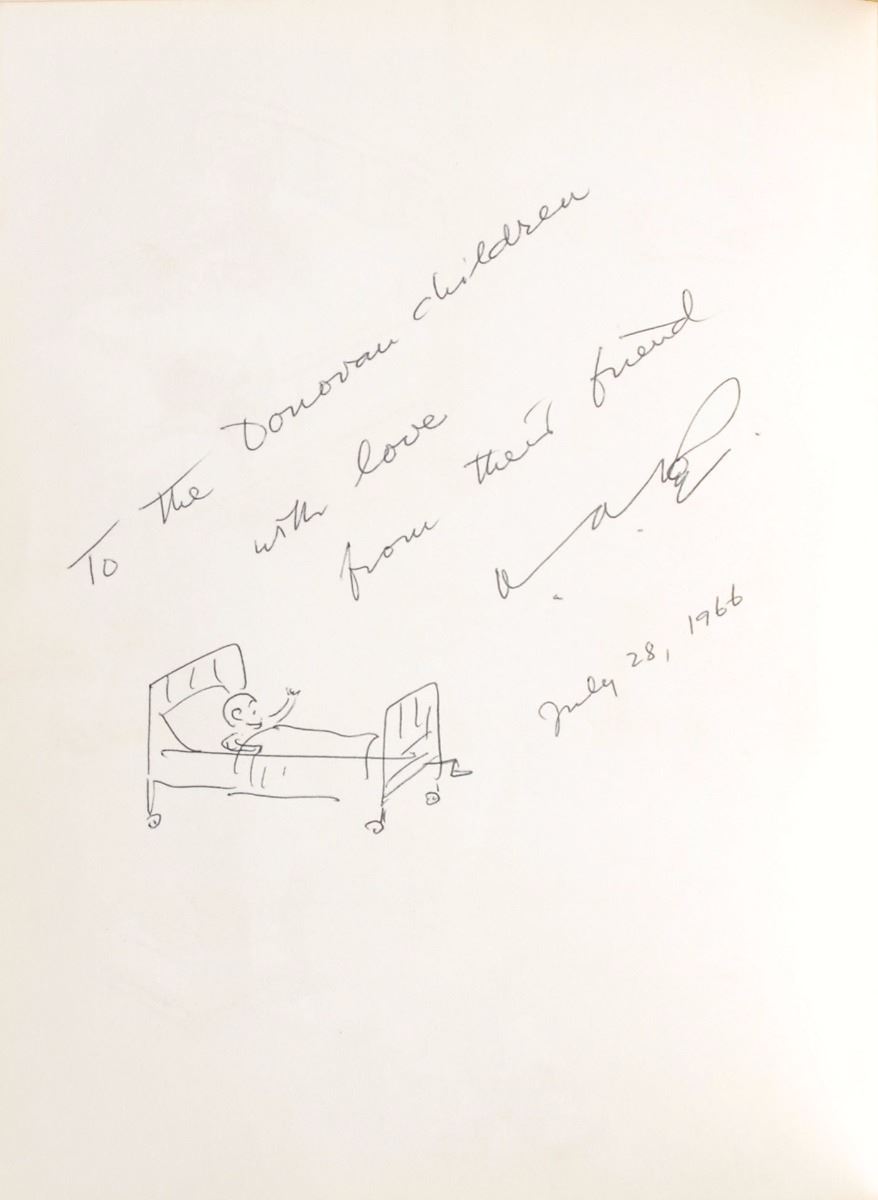 To the Donovan children
with love
from their friend
H. A. Rey.
July 28, 1966